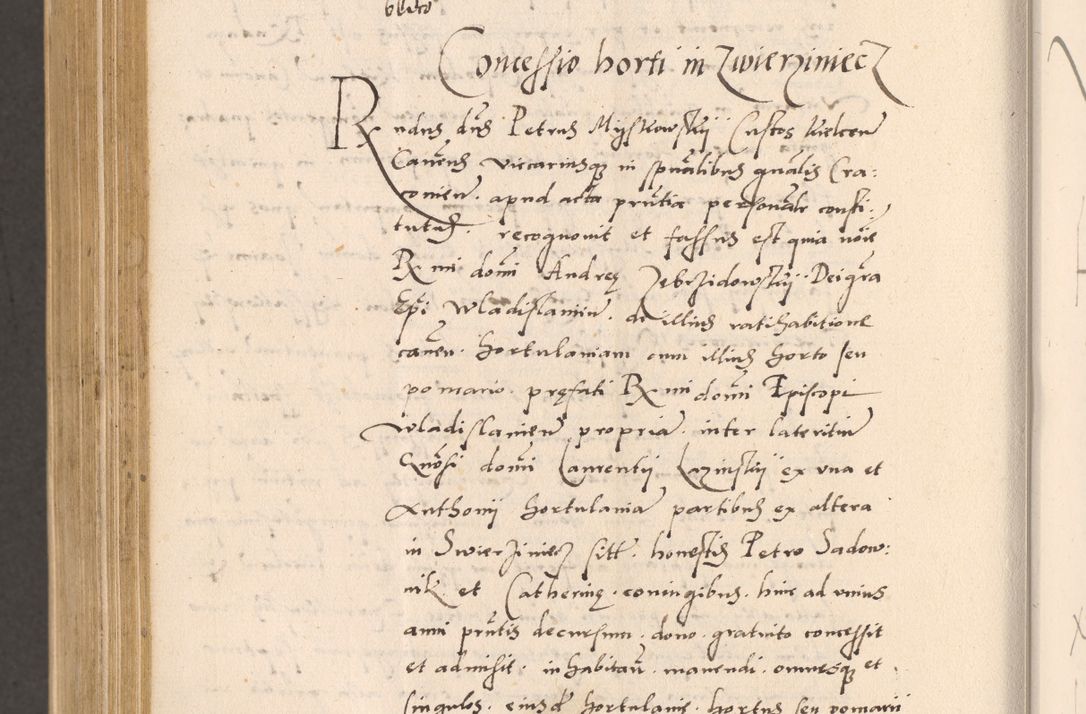 Concessio horti in Zwierziniecz
Rndus dns Petrus Myskowskij Custos Kielcen
Canens vicariusq in spualibus gnalis Cra:
covien. apud acta prntia personalr consti:
tutus. recognovit et fassus est quia noie
Rmi domi Andreę Zebrzidowskij Dei gra
Epi Wladislavien. de illius ratihabitione
caven. hortulaniam cum illius horto seu
pomario. pręfati Rmi domi Episcopi
Wladislavien propria. inter lateritiu
domi Laurentij ex una et
Anthonij hortulania partibus ex altera
in Swierziniecz sitt. honestis Petro Sadow:
nik et Catherinę. coniugibus. hinc ad unius
anni prntis decursum. dono. gratuito concessit
et admisit. inhabitan. manendi. omnesq et
singulos. eiusd hortulanie. hortus seu pomarii